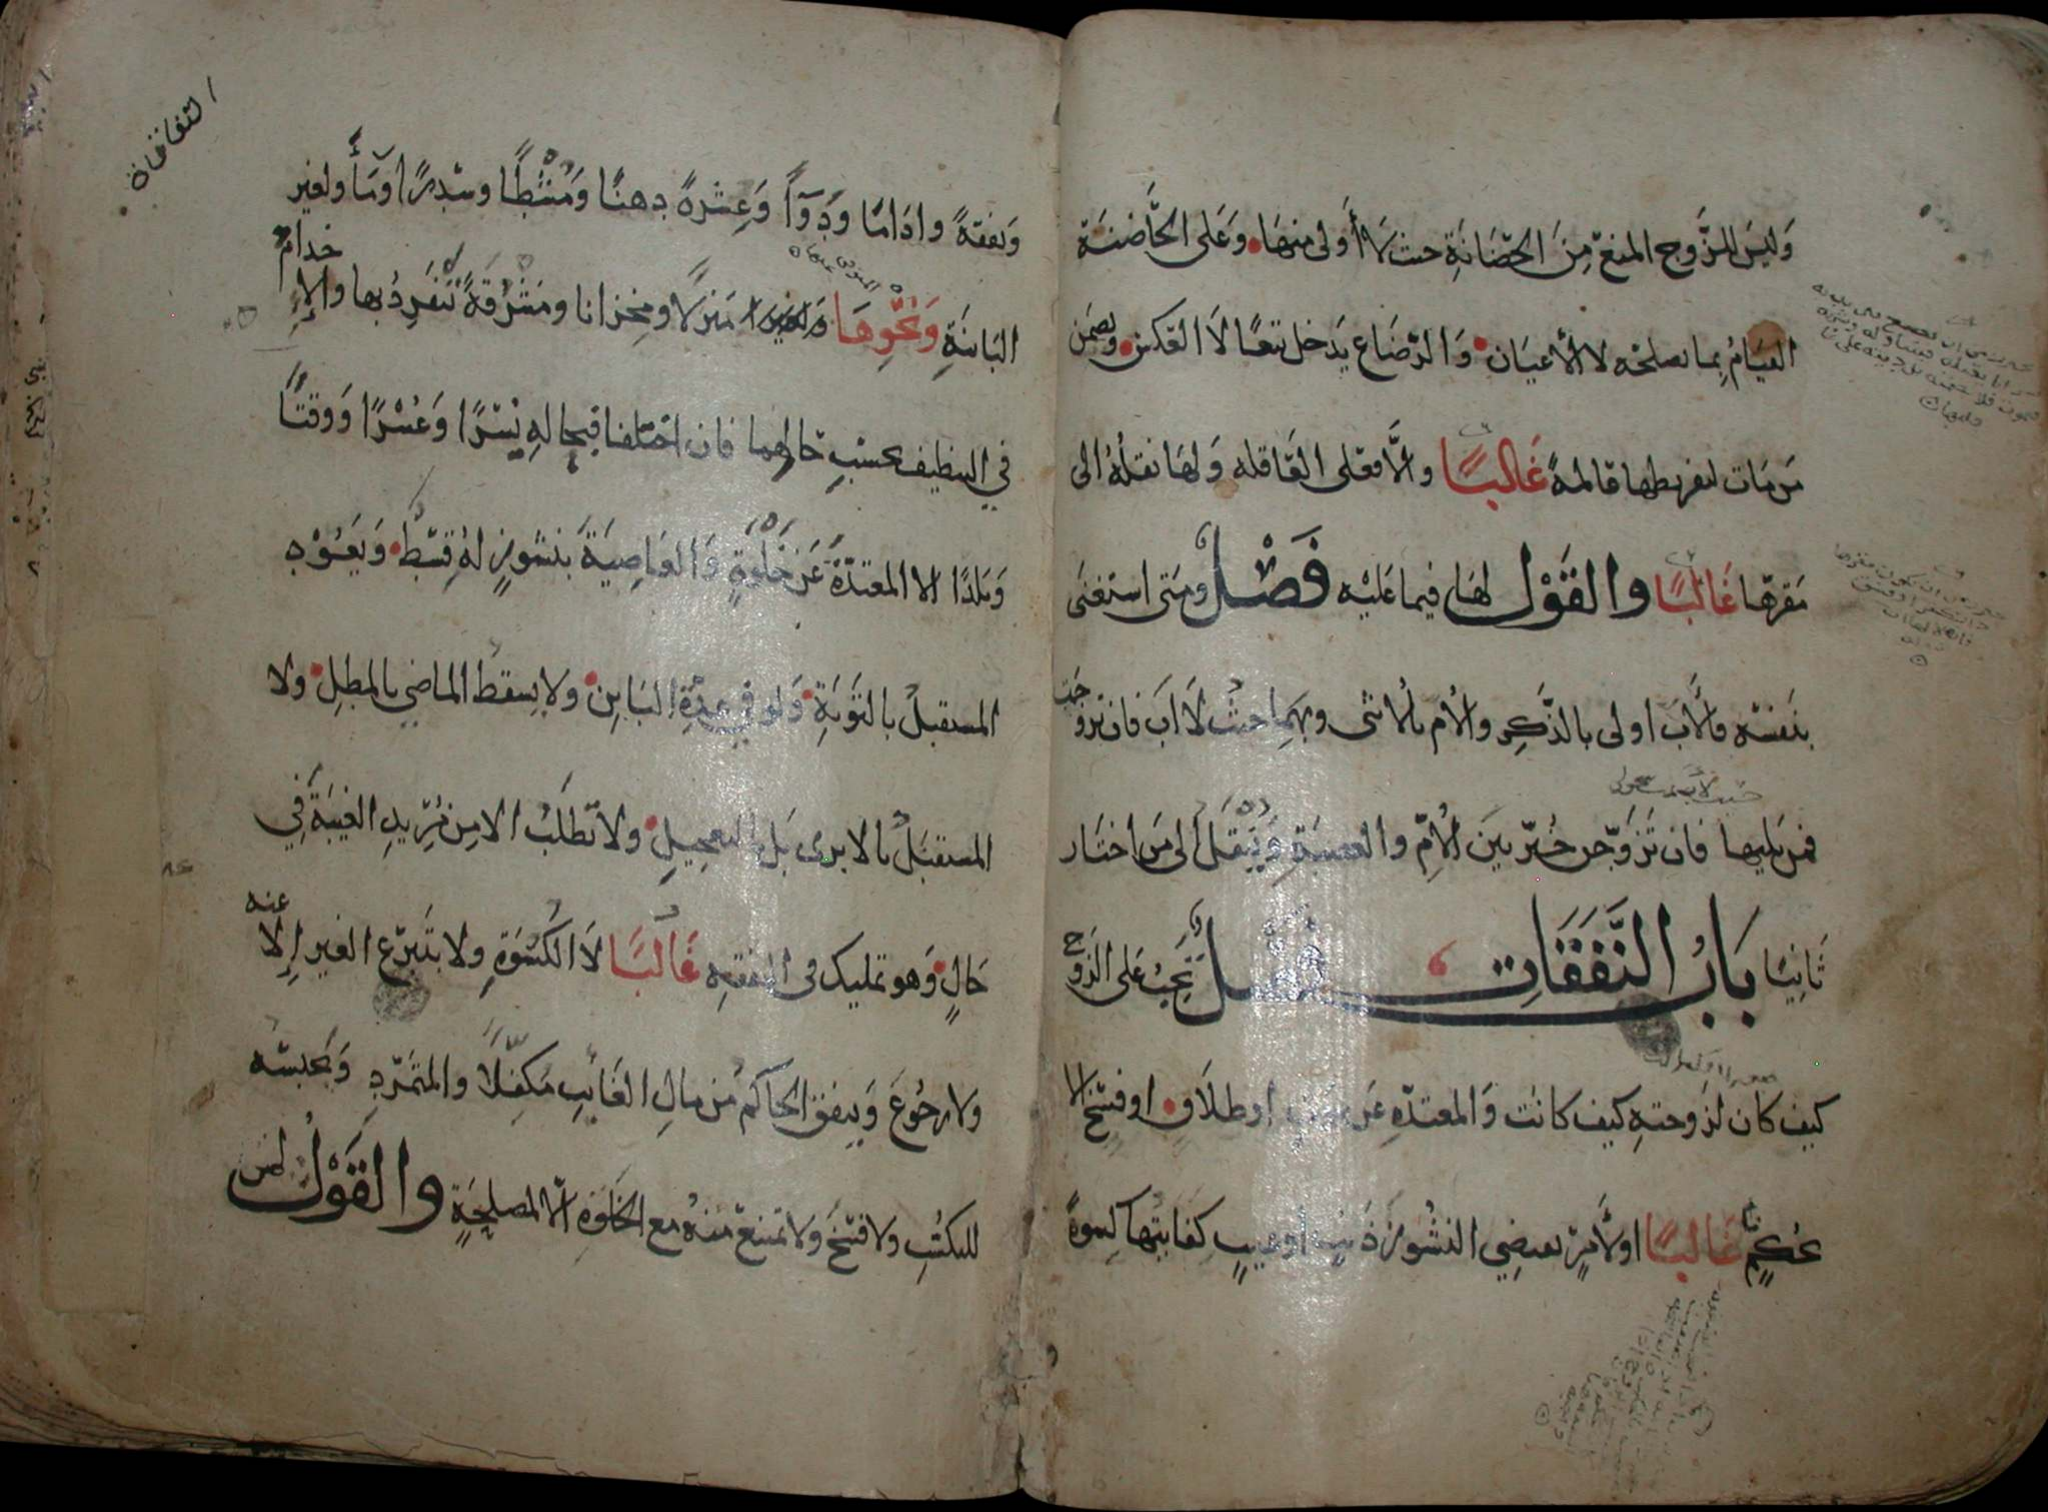 وليس للزوج المنع من الحضانة حيث لا أولى منها وعلى الحاضنة
القيام بما يصلحه لا الأعيان والرضاع يدخل تبعا لا العكس وتضمن
من مات لتفريطها عالمة غالبا والا فعلى العاقلة ولها نقله الى
مقرها غالبا والقول لها فيما عليه فصل ومتى استغنى
بنفسه فالأب اولى بالذكر والأم بالأنثى وبهما حيث لا اب فان تزوجت
فمن يليها فان تزوجن خير بين الأم والعصبة وينقل الى من اختار
ثانيا باب النفقات فصل تجب على الزوج
كيف كان لزوجته كيف كانت والمعتدة عن موت او طلاق او فسخ الا
بحكم غالبا او لأمر يقتضي النشوز ذنب او عيب كفايتها كسوة
النفقات
ونفقة واداما ودواء وعشرة دهنا ومشطا وسدرا وماء ولغير
البائنة ونحوها منزلا ومخزانا ومشرقة تنفرد بها والإخدام
في التنظيف بحسب حالهما فان اختلفا فبحاله يسرا وعسرا ووقتا
وبلدا الا المعتدة عن خلوة والعاصية بنشوز له قسط ويعود
المستقبل بالتوبة ولو في عدة البائن ولا يسقط الماضي بالمطل ولا
المستقبل بالابرى بل بالتعجيل ولا تطلب الا من مريد الغيبة في
حال وهو تمليك في النفقة غالبا لا الكسوة ولا بتبرع الغير إلا عنه
ولا رجوع وينفق الحاكم من مال الغائب مكفلا والمتمرد ويحبسه
للتكسب ولا فسخ ولا تمتنع منه مع الخلوة الا لمصلحة والقول لمن